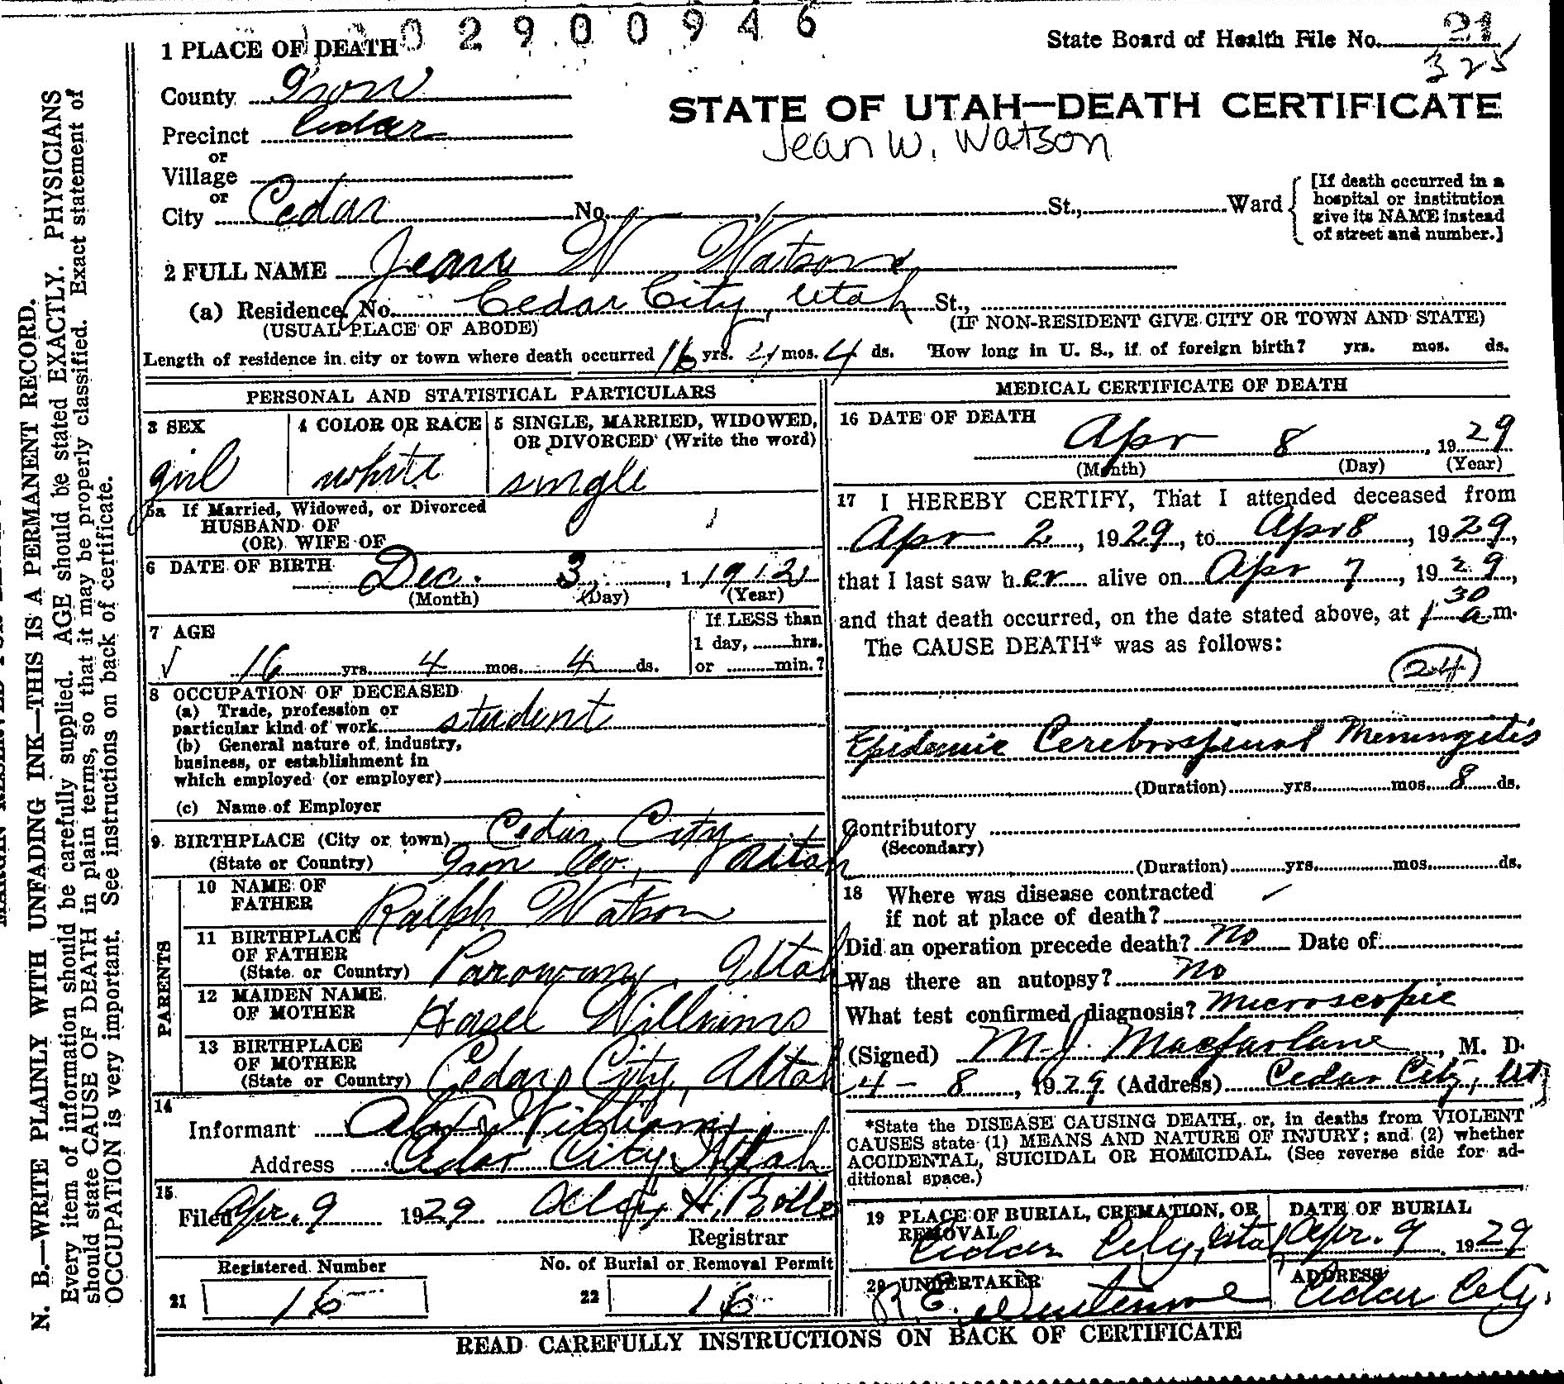 02900946
1 PLACE OF DEATH
State Board of Health File No. 21
325
County Iron
STATE OF UTAH—DEATH CERTIFICATE
Precinct Cedar
Jean W. Watson
or
Village
or
City Cedar No. St., Ward
[If death occurred in a
hospital or institution
give its NAME instead
of street and number.]
2 FULL NAME Jean W Watson
(a) Residence, No. Cedar City, Utah St.,
(USUAL PLACE OF ABODE) (IF NON-RESIDENT GIVE CITY OR TOWN AND STATE)
Length of residence in city or town where death occurred 16 yrs. 4 mos. 4 ds. How long in U. S., if of foreign birth? yrs. mos. ds.
PERSONAL AND STATISTICAL PARTICULARS
3 SEX 4 COLOR OR RACE 5 SINGLE, MARRIED, WIDOWED,
OR DIVORCED (Write the word)
girl white single
5a If Married, Widowed, or Divorced
HUSBAND OF
(OR) WIFE OF
6 DATE OF BIRTH Dec. 3, 1 1912
(Month) (Day) (Year)
7 AGE
16 yrs. 4 mos. 4 ds.
If LESS than
1 day, hrs.
or min.?
8 OCCUPATION OF DECEASED
(a) Trade, profession or
particular kind of work student
(b) General nature of industry,
business, or establishment in
which employed (or employer)
(c) Name of Employer
9 BIRTHPLACE (City or town) Cedar City
(State or Country) Iron Co., Utah
PARENTS
10 NAME OF
FATHER Ralph Watson
11 BIRTHPLACE
OF FATHER
(State or Country) Parowan, Utah
12 MAIDEN NAME
OF MOTHER Hasel Williams
13 BIRTHPLACE
OF MOTHER
(State or Country) Cedar City, Utah
14
Informant Williams
Address Cedar City, Utah
15
Filed Apr. 9 1929
Registrar
Registered Number No. of Burial or Removal Permit
21 16 22 16
MEDICAL CERTIFICATE OF DEATH
16 DATE OF DEATH
Apr 8, 1929
(Month) (Day) (Year)
17 I HEREBY CERTIFY, That I attended deceased from
Apr 2, 1929, to Apr 8, 1929,
that I last saw her alive on Apr 7, 1929,
and that death occurred, on the date stated above, at 1 30 a.m.
The CAUSE DEATH* was as follows:
24
Epidemic Cerebrospinal Meningitis
(Duration) yrs. mos. 8 ds.
Contributory
(Secondary)
(Duration) yrs. mos. ds.
18 Where was disease contracted
if not at place of death?
Did an operation precede death? no Date of
Was there an autopsy? no
What test confirmed diagnosis? Microscopic
(Signed) M. J. Macfarlane, M. D.
4-8, 1929 (Address) Cedar City, Ut
*State the DISEASE CAUSING DEATH, or, in deaths from VIOLENT
CAUSES state (1) MEANS AND NATURE OF INJURY; and (2) whether
ACCIDENTAL, SUICIDAL OR HOMICIDAL. (See reverse side for ad-
ditional space.)
19 PLACE OF BURIAL, CREMATION, OR
REMOVAL
Cedar City, Utah
DATE OF BURIAL
Apr. 9 1929
20 UNDERTAKER
ADDRESS
Cedar City.
READ CAREFULLY INSTRUCTIONS ON BACK OF CERTIFICATE
N. B.—WRITE PLAINLY WITH UNFADING INK—THIS IS A PERMANENT RECORD.
Every item of information should be carefully supplied. AGE should be stated EXACTLY. PHYSICIANS
should state CAUSE OF DEATH in plain terms, so that it may be properly classified. Exact statement of
OCCUPATION is very important. See instructions on back of certificate.